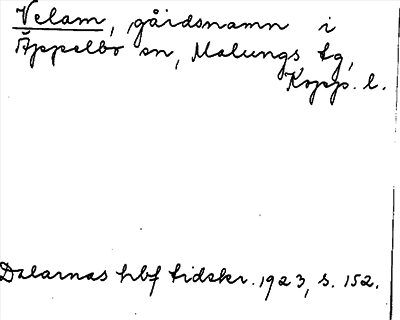 Velam, gårdsnamn i
Äppelbo sn, Malungs tg,
Kopp. l.
Dalarnas hbf tidskr. 1923, s. 152.